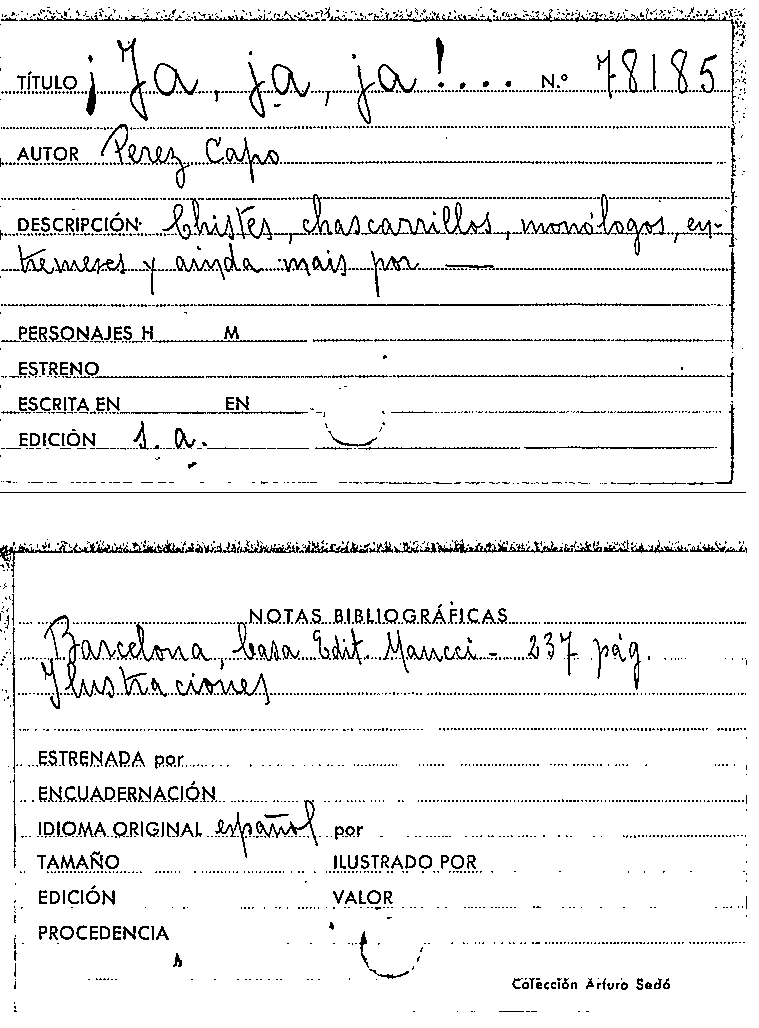 TÍTULO ¡Ja, ja, ja!... N.º 78185
AUTOR Perez Capo
DESCRIPCIÓN: Chistes, chascarrillos, monólogos, en-
tremeses y ainda mais por —
PERSONAJES H M
ESTRENO
ESCRITA EN EN
EDICIÓN s. a.
NOTAS BIBLIOGRÁFICAS
Barcelona, Casa Edit. Maucci - 237 pág.
Ilustraciones
ESTRENADA por
ENCUADERNACIÓN
IDIOMA ORIGINAL español por
TAMAÑO ILUSTRADO POR
EDICIÓN VALOR
PROCEDENCIA
Colección Arturo Sedó